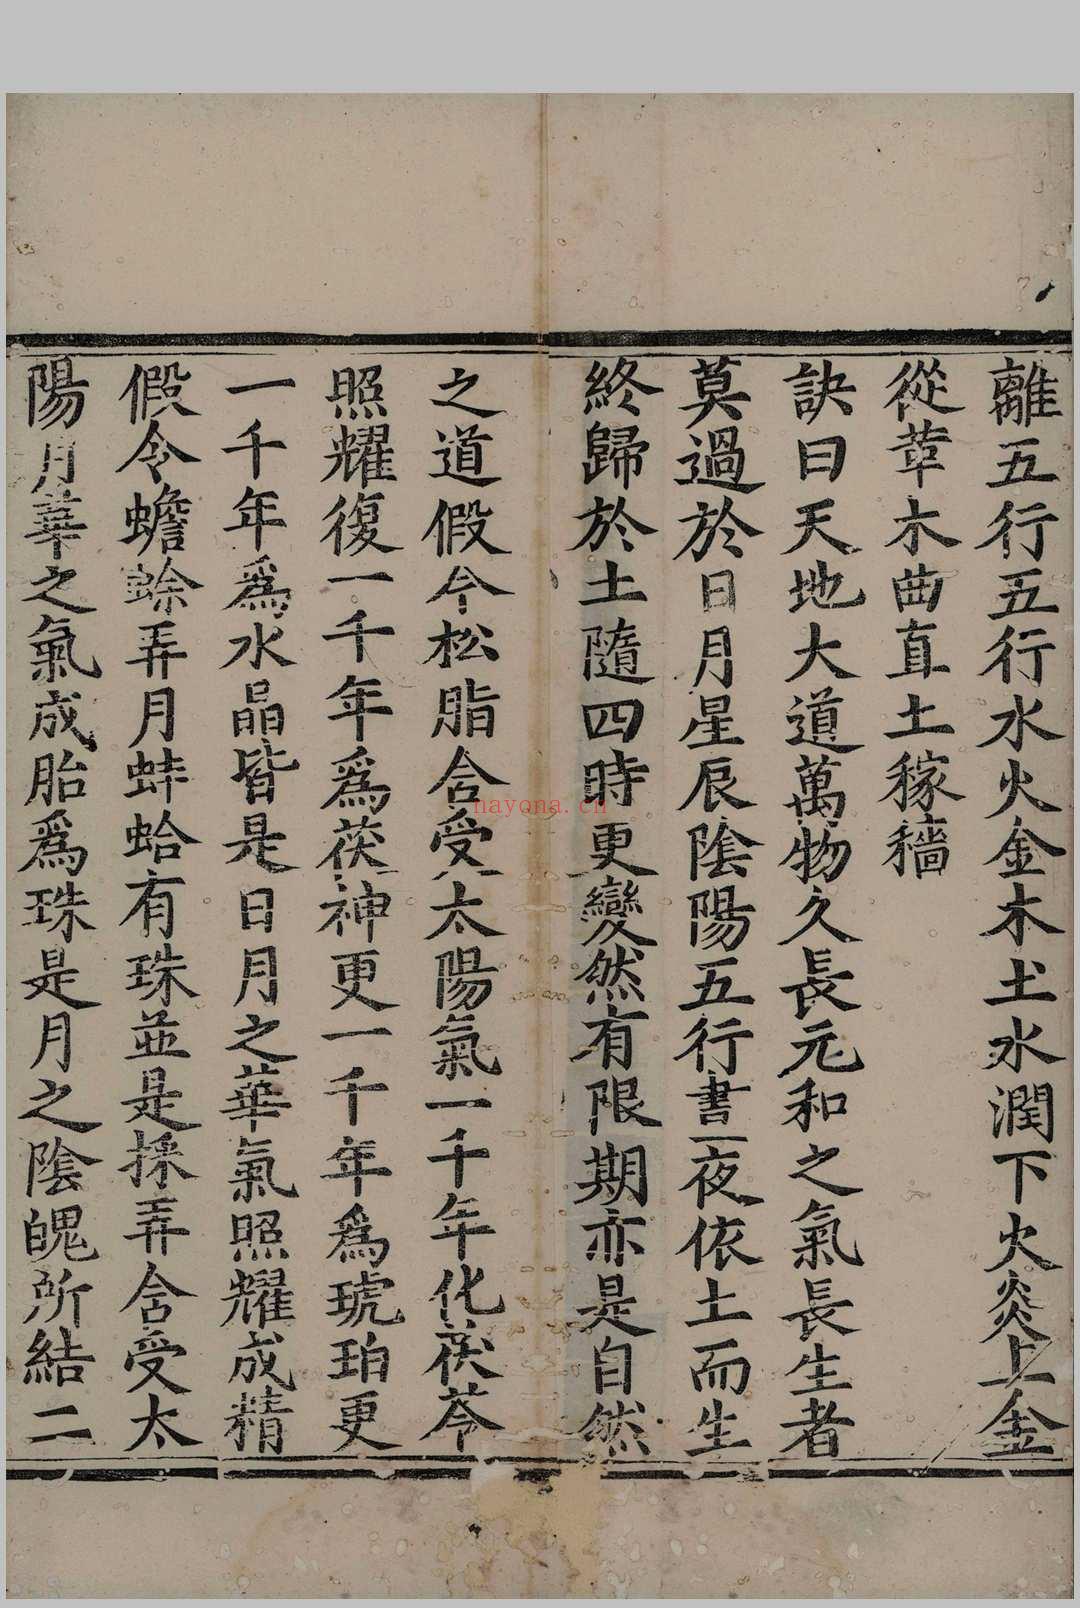 離五行五行水火金木土水潤下火炎上金
從革木曲直土稼穡
訣曰天地大道萬物久長元和之氣長生者
莫過於日月星辰陰陽五行晝夜依土而生
終歸於土隨四時更變然有限期亦是自然
之道假令松脂含受太陽氣一千年化茯苓
照耀復一千年爲茯神更一千年爲琥珀更
一千年爲水晶皆是日月之華氣照耀成精
假令蟾蜍弄月蚌蛤有珠並是採弄含受太
陽月華之氣成胎爲珠是月之陰魄所結二
nayona.cn